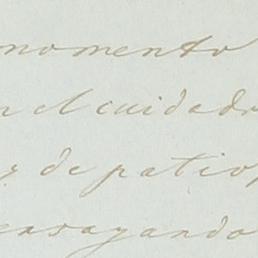 momento
n el cuidado
z de patio,
ensayando